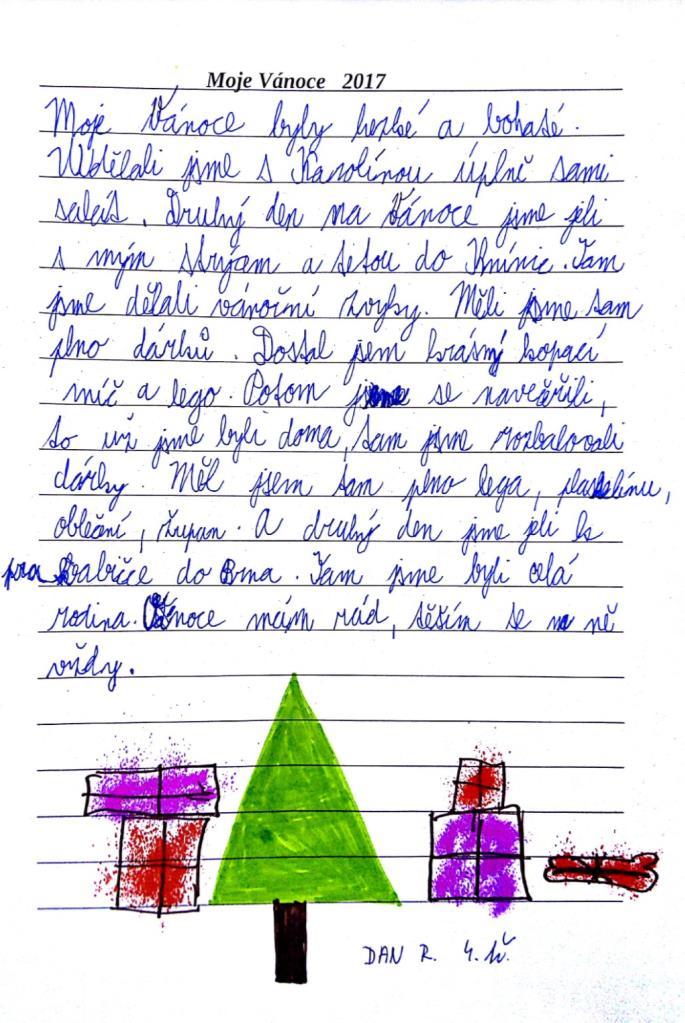 Moje Vánoce 2017
Moje Vánoce byly hezké a bohaté.
Udělali jsme s Karolínou úplně sami
salát. Druhý den na Vánoce jsme jeli
s mým strýjam a tetou do Knínic. Tam
jsme dělali vánoční zvyky. Měli jsme tam
plno dárků. Dostal jsem krásný kopací
míč a lego. Potom jsme se navečeřili,
to už jsme byli doma, tam jsme rozbalovali
dárky. Měl jsem tam plno lega, plastelínu,
oblečení, župan. A druhý den jsme jeli k
prababičce do Brna. Tam jsme byli celá
rodina. Vánoce mám rád, těším se na ně
vždy.
DAN R. 4.